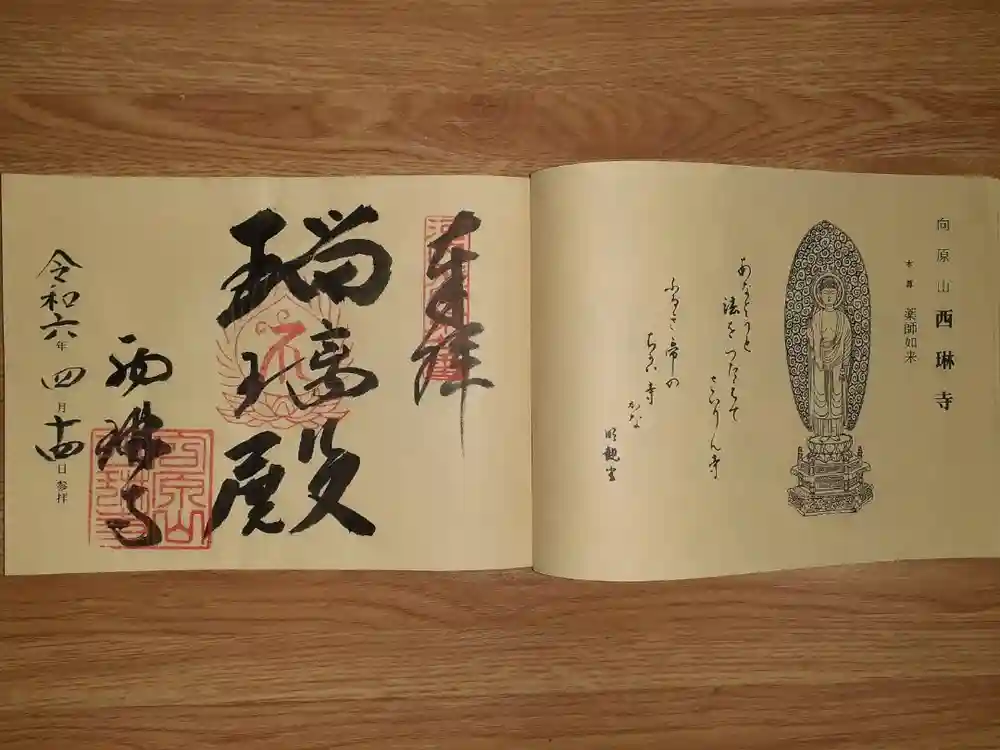 向原山 西琳寺
本尊 薬師如来
法をつたへて
さいりん寺
ふるき帝の
寺
かな
奉拝
瑠璃殿
西琳寺
向原山
西琳寺
令和六年四月十四日参拝